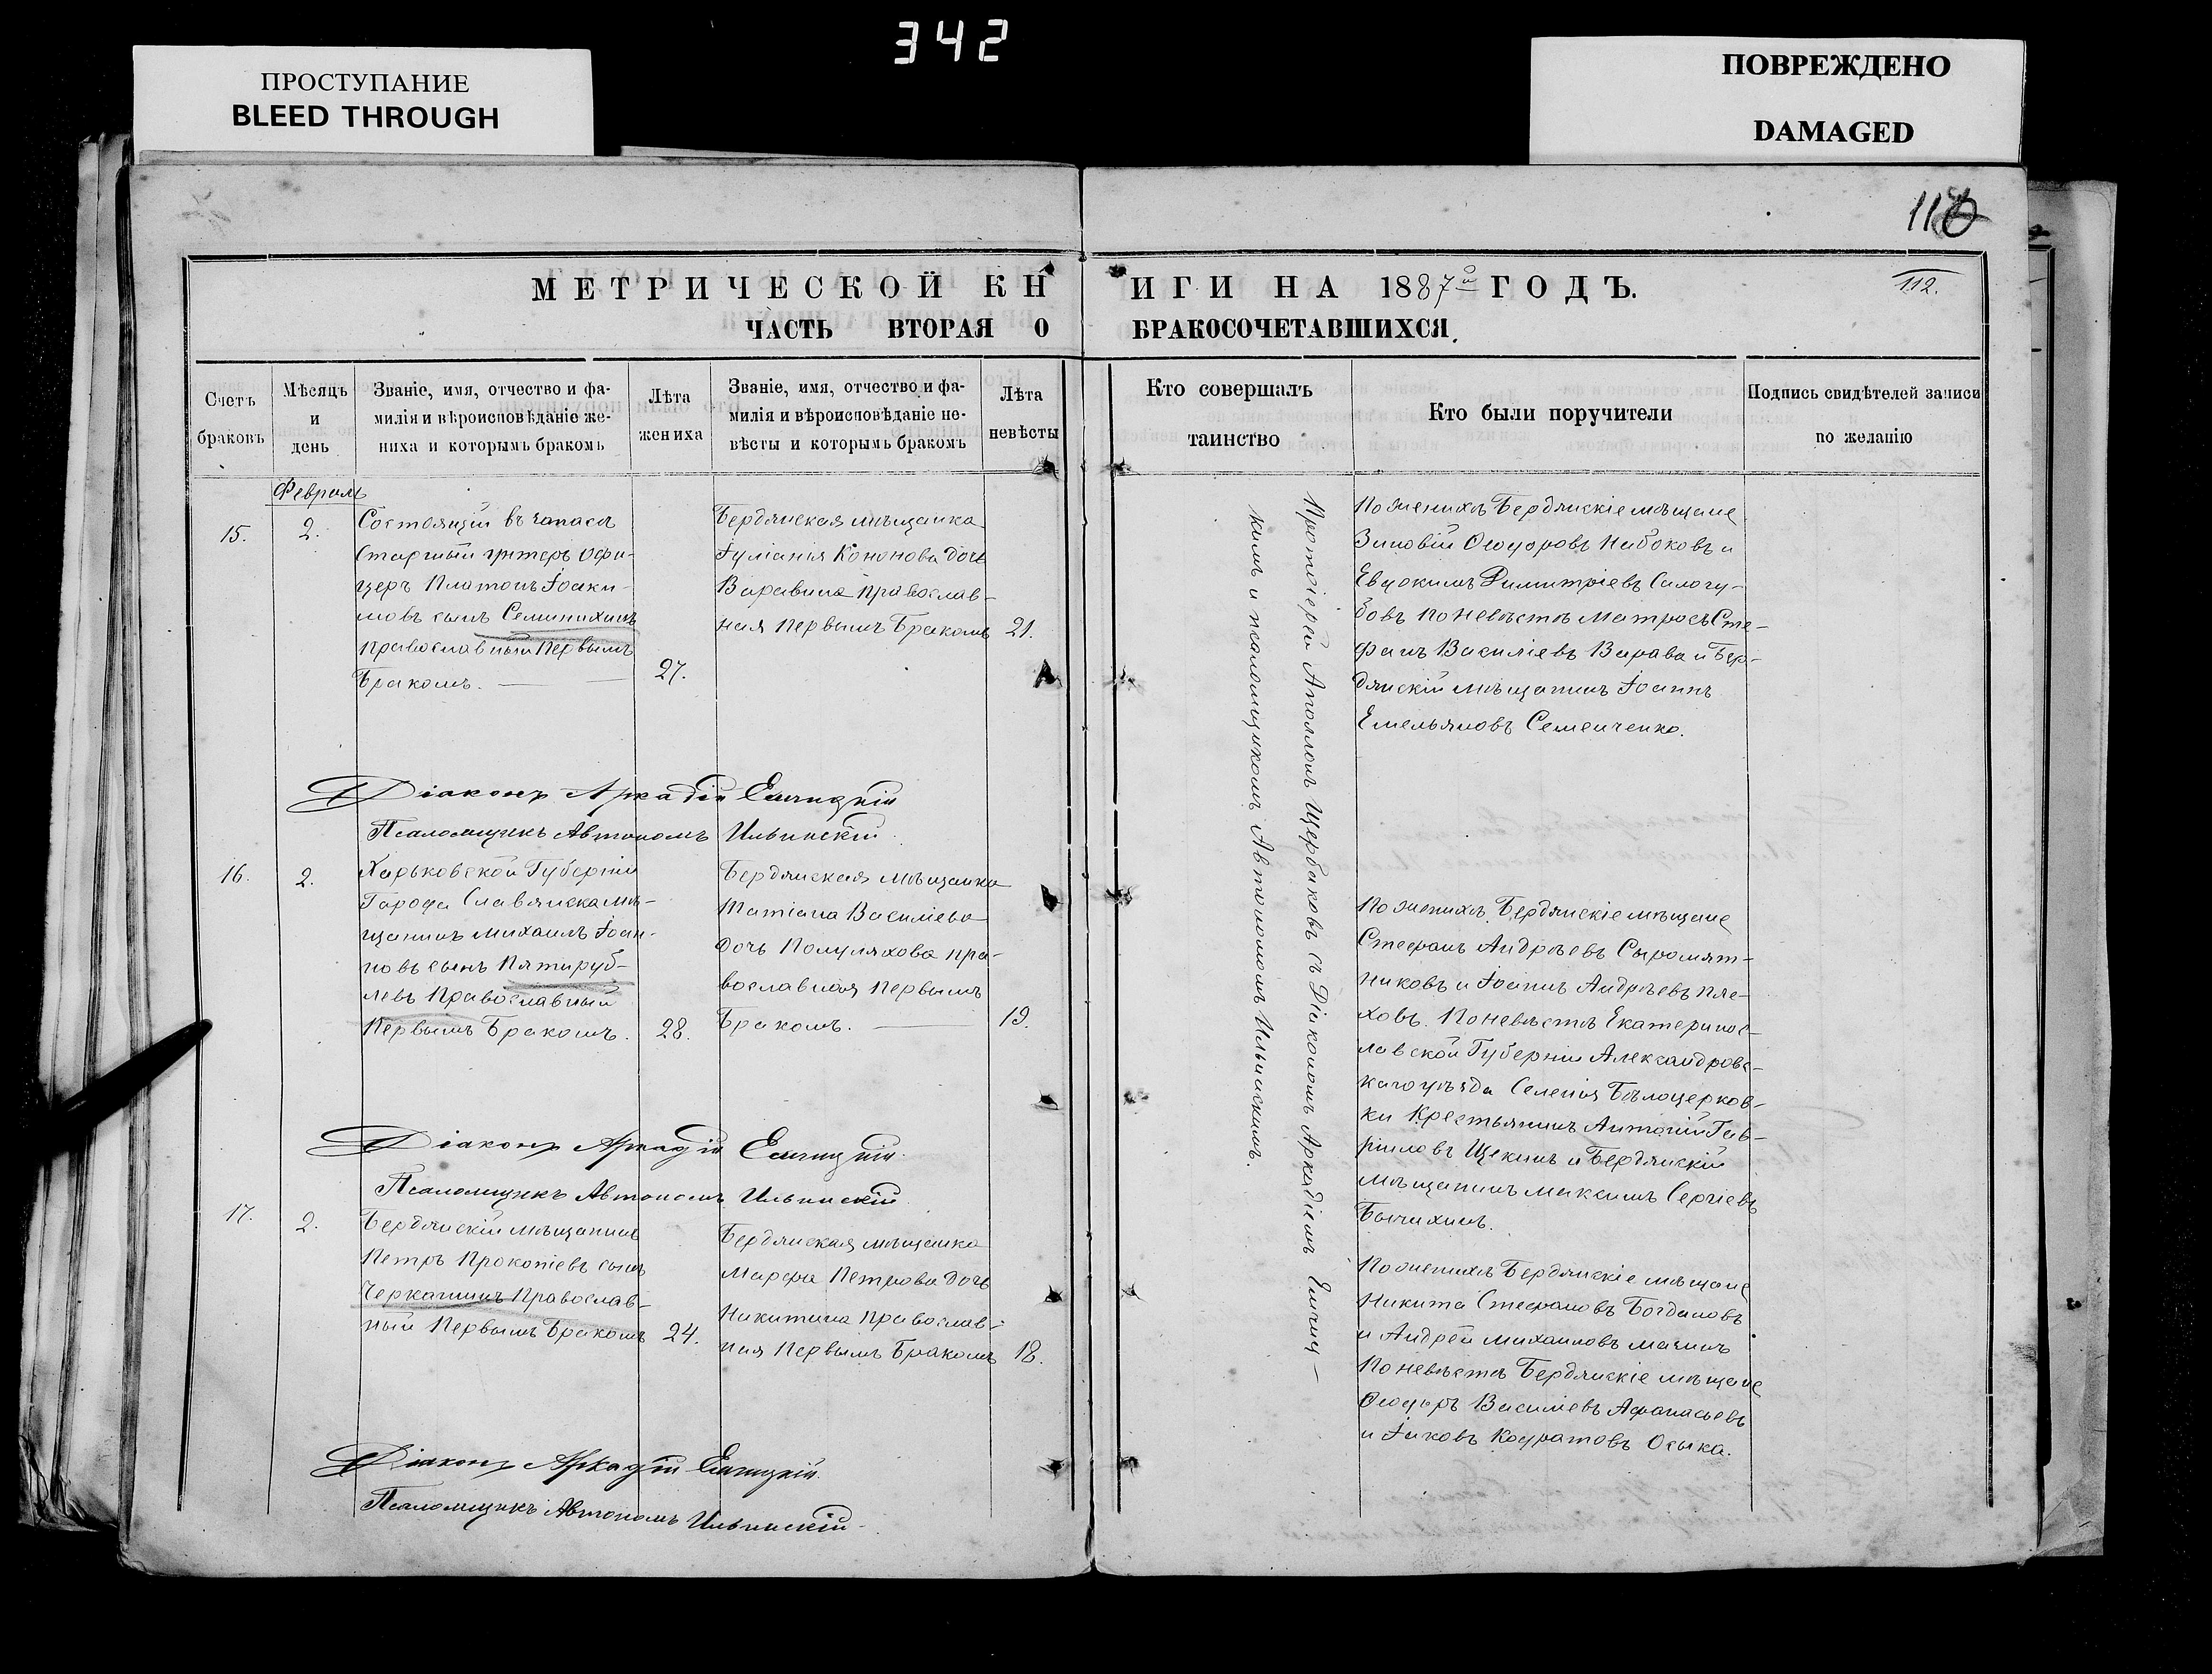 342
ПРОСТУПАНИЕ
BLEED THROUGH
ПОВРЕЖДЕНО
DAMAGED
112.
МЕТРИЧЕСКОЙ КНИГИ НА 1887й ГОДЪ.
ЧАСТЬ ВТОРАЯ О БРАКОСОЧЕТАВШИХСЯ.
Счетъ
браковъ
Мѣсяцъ
и
день
Званіе, имя, отчество и фа-
милія и вѣроисповѣданіе же-
ниха и которымъ бракомъ
Лѣта
жениха
Званіе, имя, отчество и фа-
милія и вѣроисповѣданіе не-
вѣсты и которымъ бракомъ
Лѣта
невѣсты
Кто совершалъ
таинство
Кто были поручители
Подпись свидѣтелей записи
по желанію
Февраль
15.
2.
Состоящій въ запасѣ
Старшій унтеръ Офи-
церъ Платонъ Іоаки-
мовъ сынъ Семинихинъ
православный Первымъ
Бракомъ.
27.
Бердянская мѣщанка
Іуліанія Кононова дочь
Варавина православ-
ная первымъ Бракомъ
21.
Протоіерей Аполлонъ Щербаковъ съ Діакономъ Аркадіемъ
кимъ и псаломщикомъ Автономомъ Ильинскимъ.
По женихѣ Бердянскіе мѣщане
Зиновій Ѳеодоровъ Набоковъ и
Евдокимъ Димитріевъ Салогу-
бовъ по невѣстѣ матросъ Сте-
фанъ Василіевъ Варава и Бер-
дянскій мѣщанинъ Іоаннъ
Емельяновъ Семенченко.
Діаконъ Аркадій
Псаломщикъ Автономъ Ильинскій.
16.
2.
Харьковской Губерніи
Города Славянска мѣ-
щанинъ Михаилъ Іоан-
новъ сынъ Пятируб-
левъ Православный
Первымъ Бракомъ.
28.
Бердянская мѣщанка
Татіана Василіева
дочь Полуляхова пра-
вославная Первымъ
Бракомъ.
19.
По женихѣ Бердянскіе мѣщане
Стефанъ Андреевъ Сыромят-
никовъ и Іоаннъ Андреевъ Пле-
ховъ. По невѣстѣ Екатеринос-
лавской Губерніи Александровс-
каго уѣзда Селенія Бѣлоцерков-
ки Крестьянинъ Антоній Гав-
ріиловъ Щекинъ и Бердянскій
мѣщанинъ Максимъ Сергіевъ
Бычихинъ.
Діаконъ Аркадій
Псаломщикъ Автономъ Ильинскій
17.
2.
Бердянскій мѣщанинъ
Петръ Прокопіевъ сынъ
Черкашинъ Православ-
ный Первымъ Бракомъ
24.
Бердянская мѣщанка
Марѳа Петрова дочь
Никитина Православ-
ная Первымъ Бракомъ
18.
По женихѣ Бердянскіе мѣщане
Никита Стефановъ Богдановъ
и Андрей Михаиловъ
По невѣстѣ Бердянскіе мѣщане
Ѳеодоръ Василіевъ Афанасьевъ
и Іаковъ Кодратовъ Осыка.
Діаконъ Аркадій
Псаломщикъ Автономъ Ильинскій